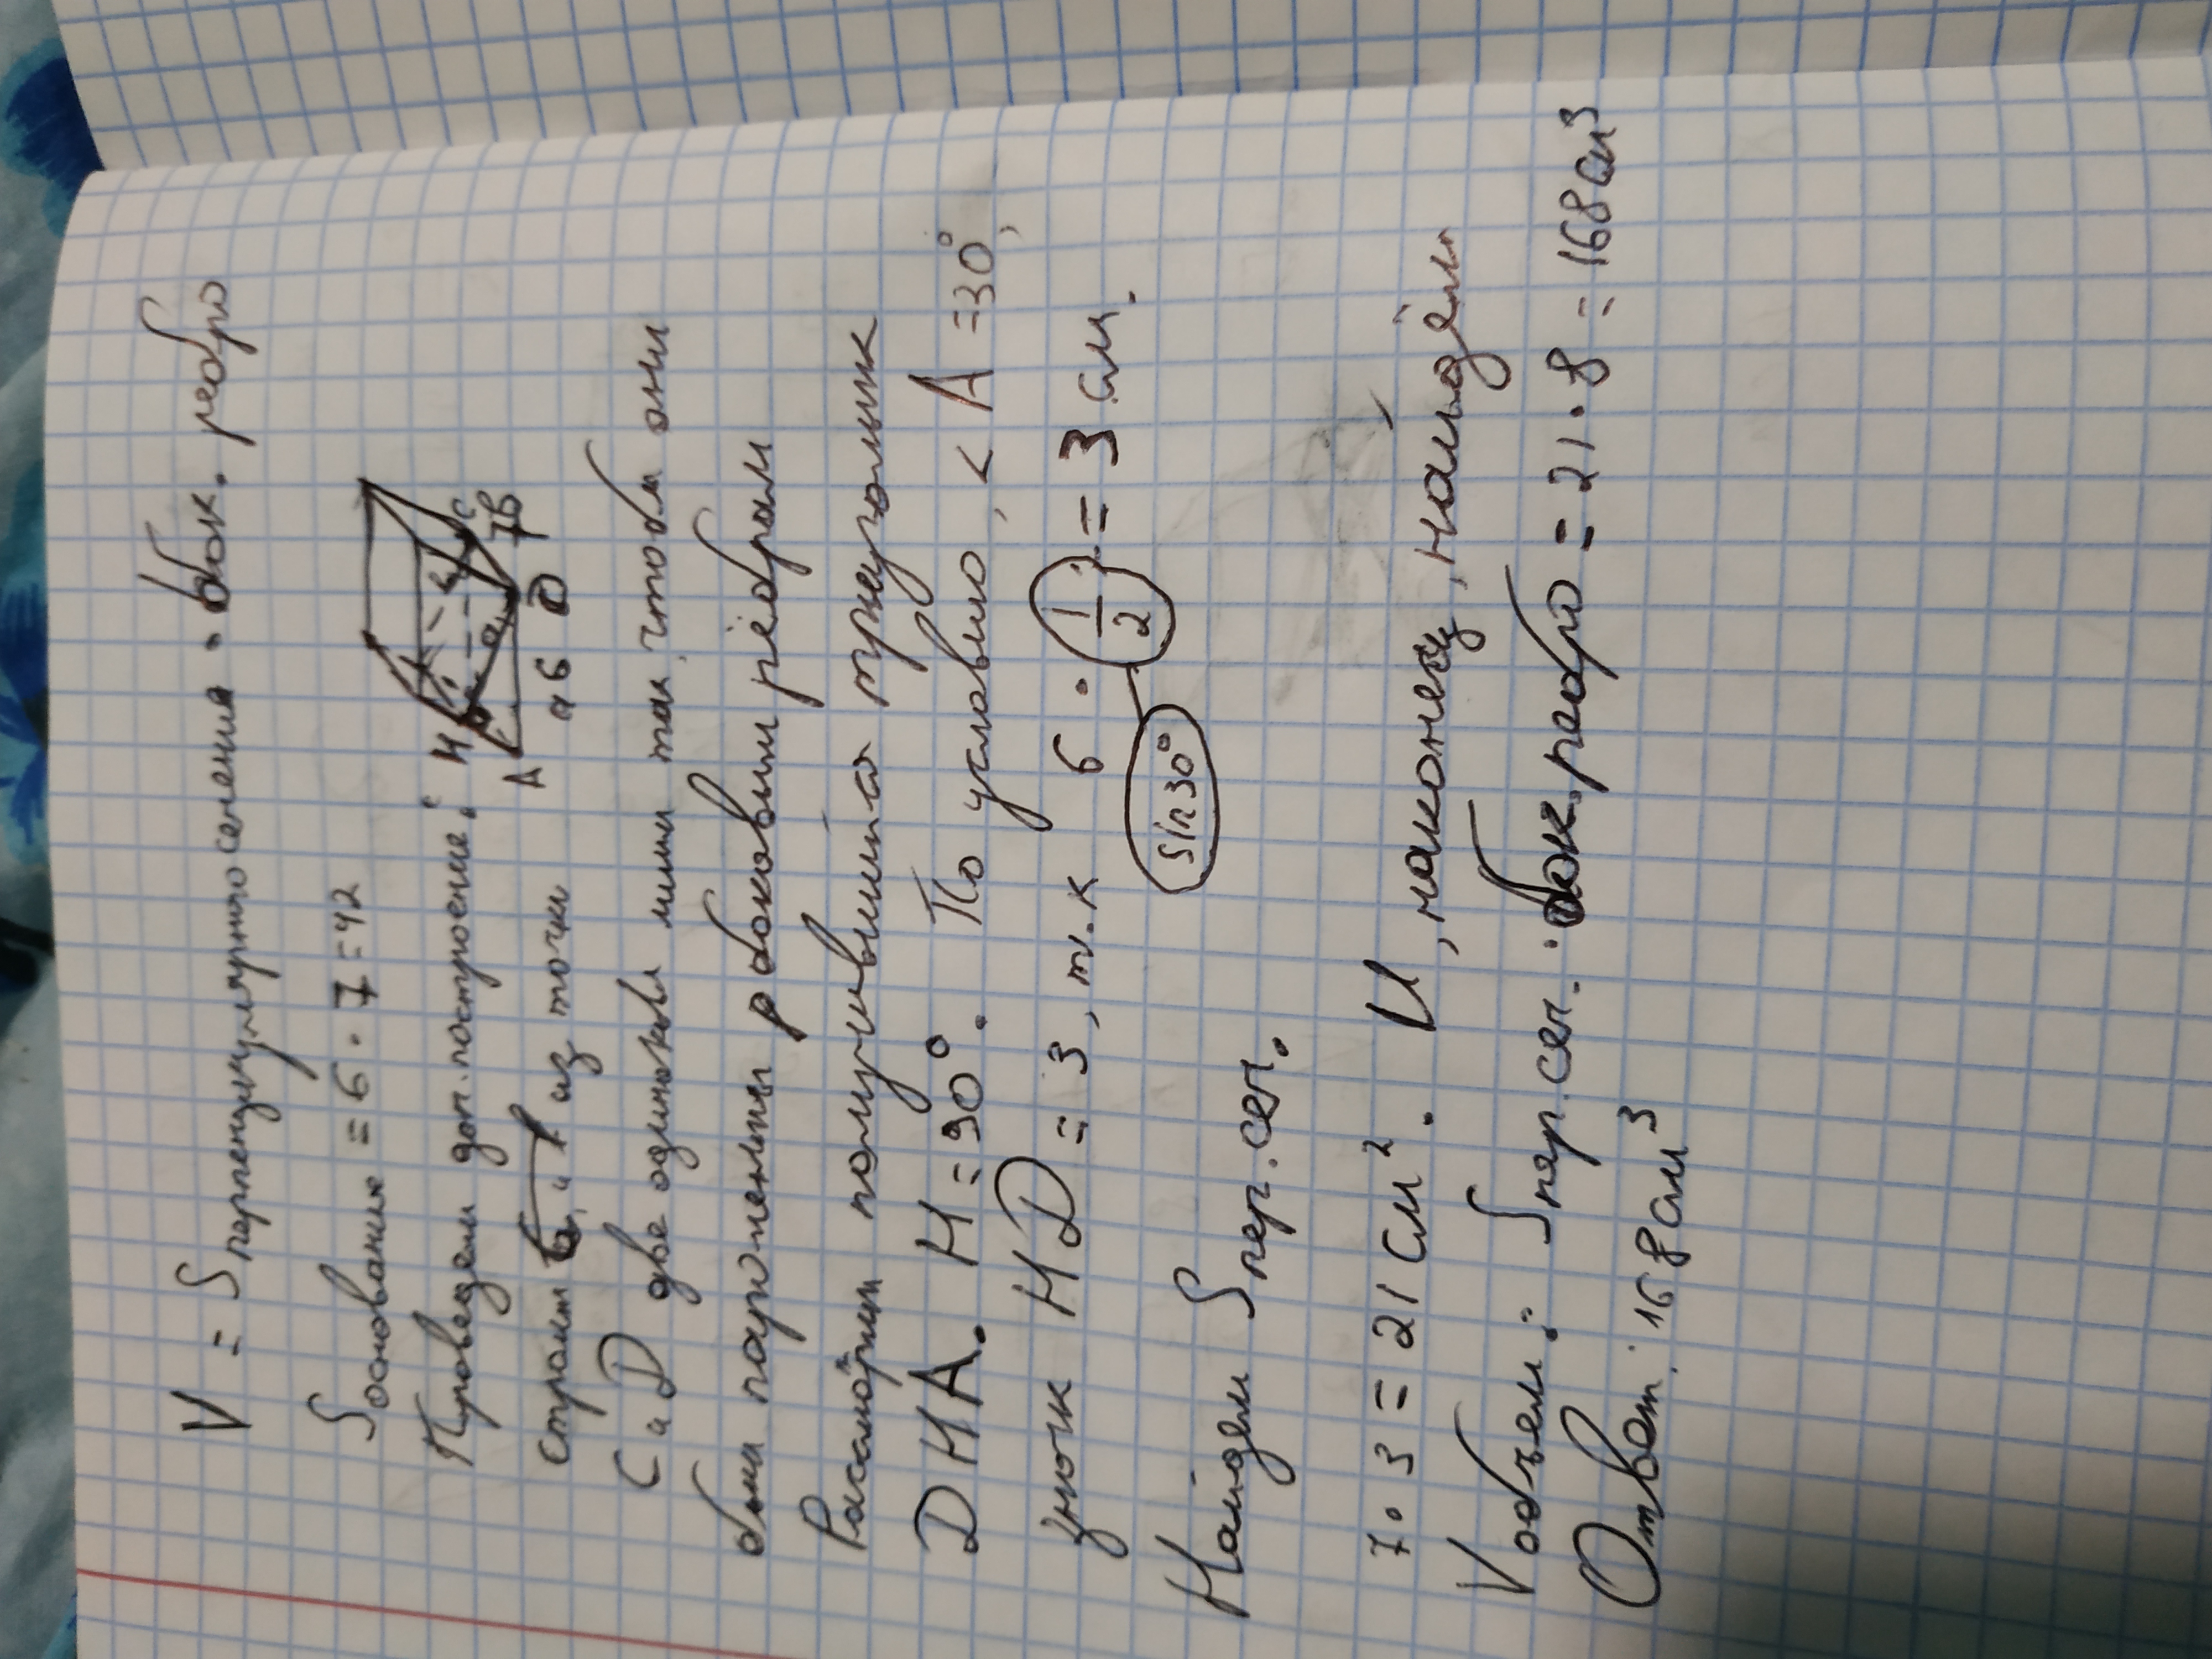 V = S перпендикулярного сечения · бок. ребро
S основание = 6 · 7 = 42
Проведем доп. построение:
H
C
A
a 6
D
7 b
строим из точки
C и D две одинаковы лини так, чтобы они
были парпоненты боковым рёбрам
Расмотрим получившийся триугольник
DHA. H = 90°. По условию, < A = 30°,
знчк HD = 3, т.к 6 · 1/2 = 3 см.
sin 30°
Найдем S пер. сеч.
7 · 3 = 21 см². И, наконец, найдём
V объем: S пер. сеч. · бок. ребро = 21 · 8 = 168 см³
Ответ: 168 см³